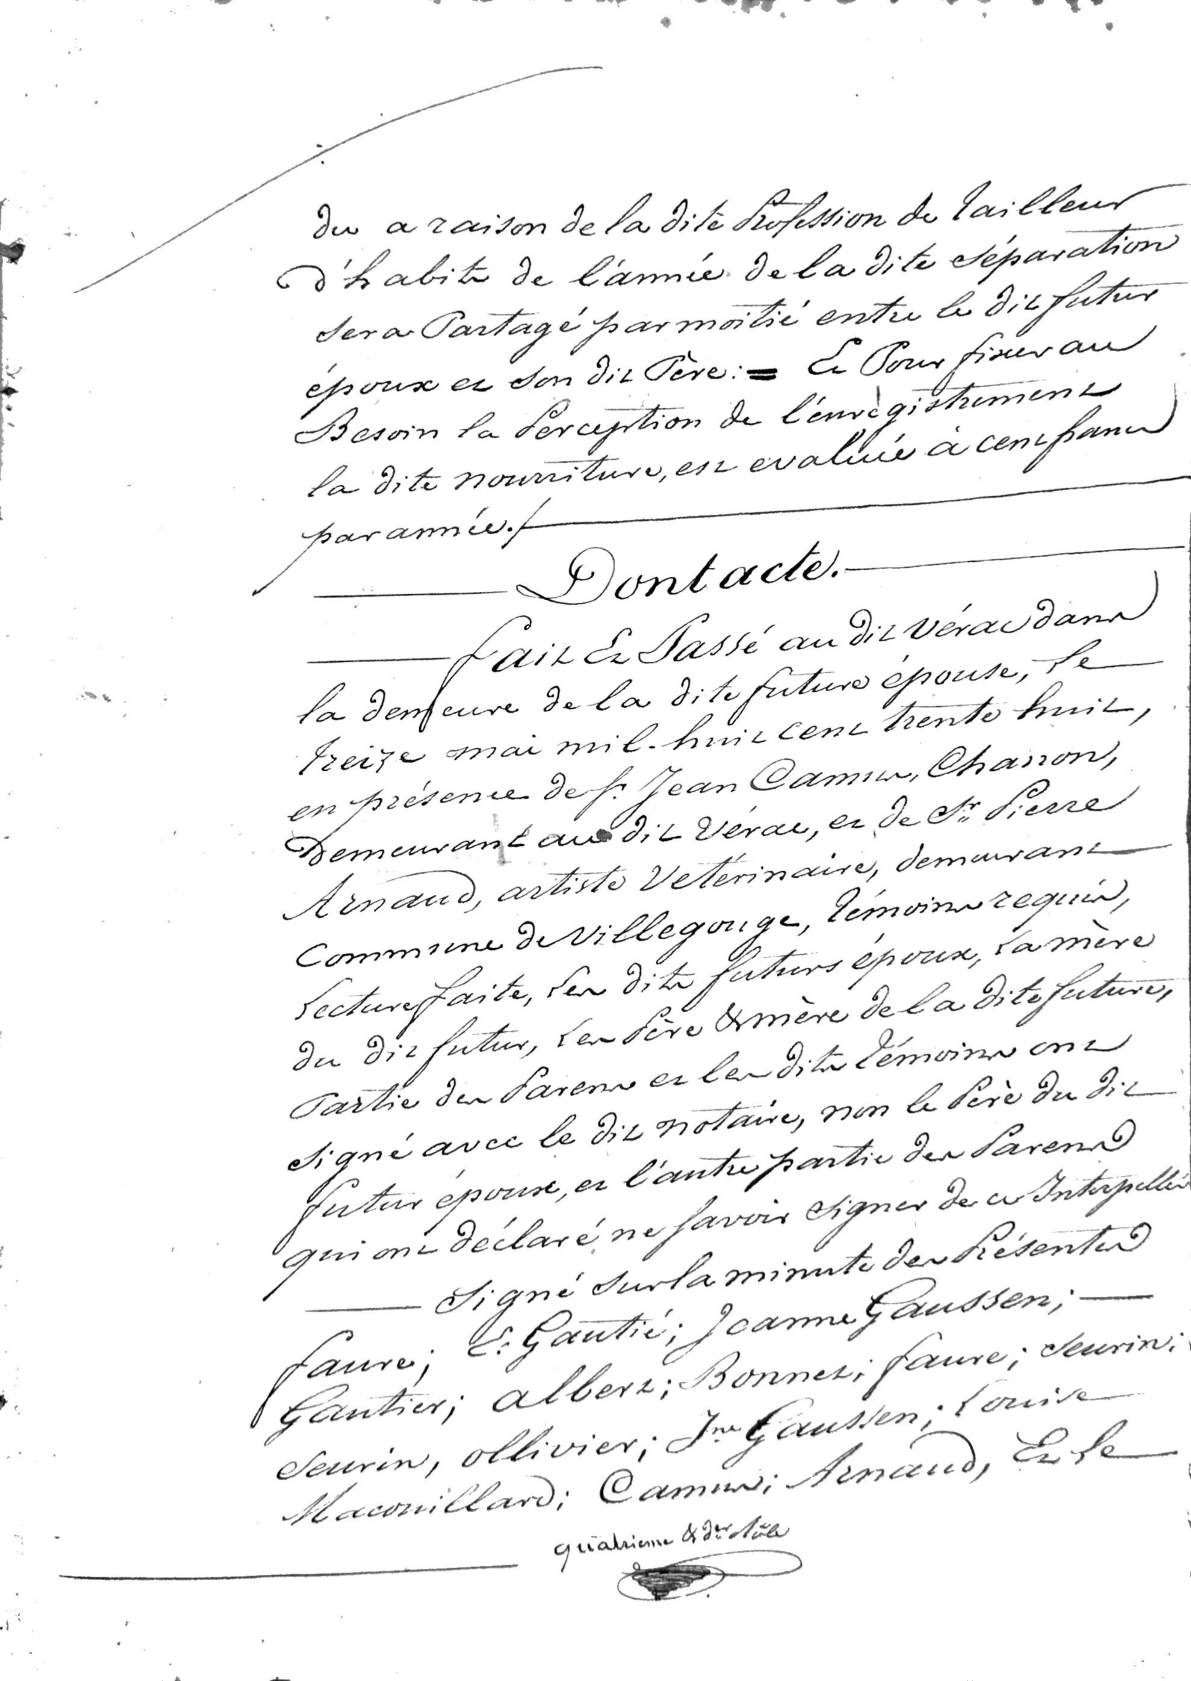 du a raison de la dite Profession de tailleur
d'habits de l'année de la dite séparation
sera Partagé par moitié entre le dit futur
époux et son dit Père: = Et Pour fixer au
Besoin la Perception de l'enrégistrement
la dite nourriture, est evaluée à cent francs
par année./.
Dont acte.
fait Et Passé au dit Vérac dans
la demeure de la dite future épouse, Le
treize mai mil-huit cent trente huit,
en présence de Sr. Jean Camus, Charron,
Demeurant au dit Vérac, et de Sr. Pierre
Arnaud, artiste Vetérinaire, demeurant
Commune de Villegouge, témoins requis,
Lecture faite, Les dits futurs époux, La mère
du dit futur, Les Père & mère de la dite future,
Partie des Parens et les dits témoins ont
signé avec le dit notaire, non le Père du dit
futur époux, et l'autre partie des Parens
qui ont déclaré ne savoir signer de ce Interpellés
Signé sur la minute des Présentes
faure; Gautié; Jeanne Gaussen;
Gautier; albert; Bonnet; faure; Seurin;
Seurin, ollivier; Jne Gaussen; Louise
Macouillard; Camus; Arnaud, Et Le
quatrieme & der Rôle